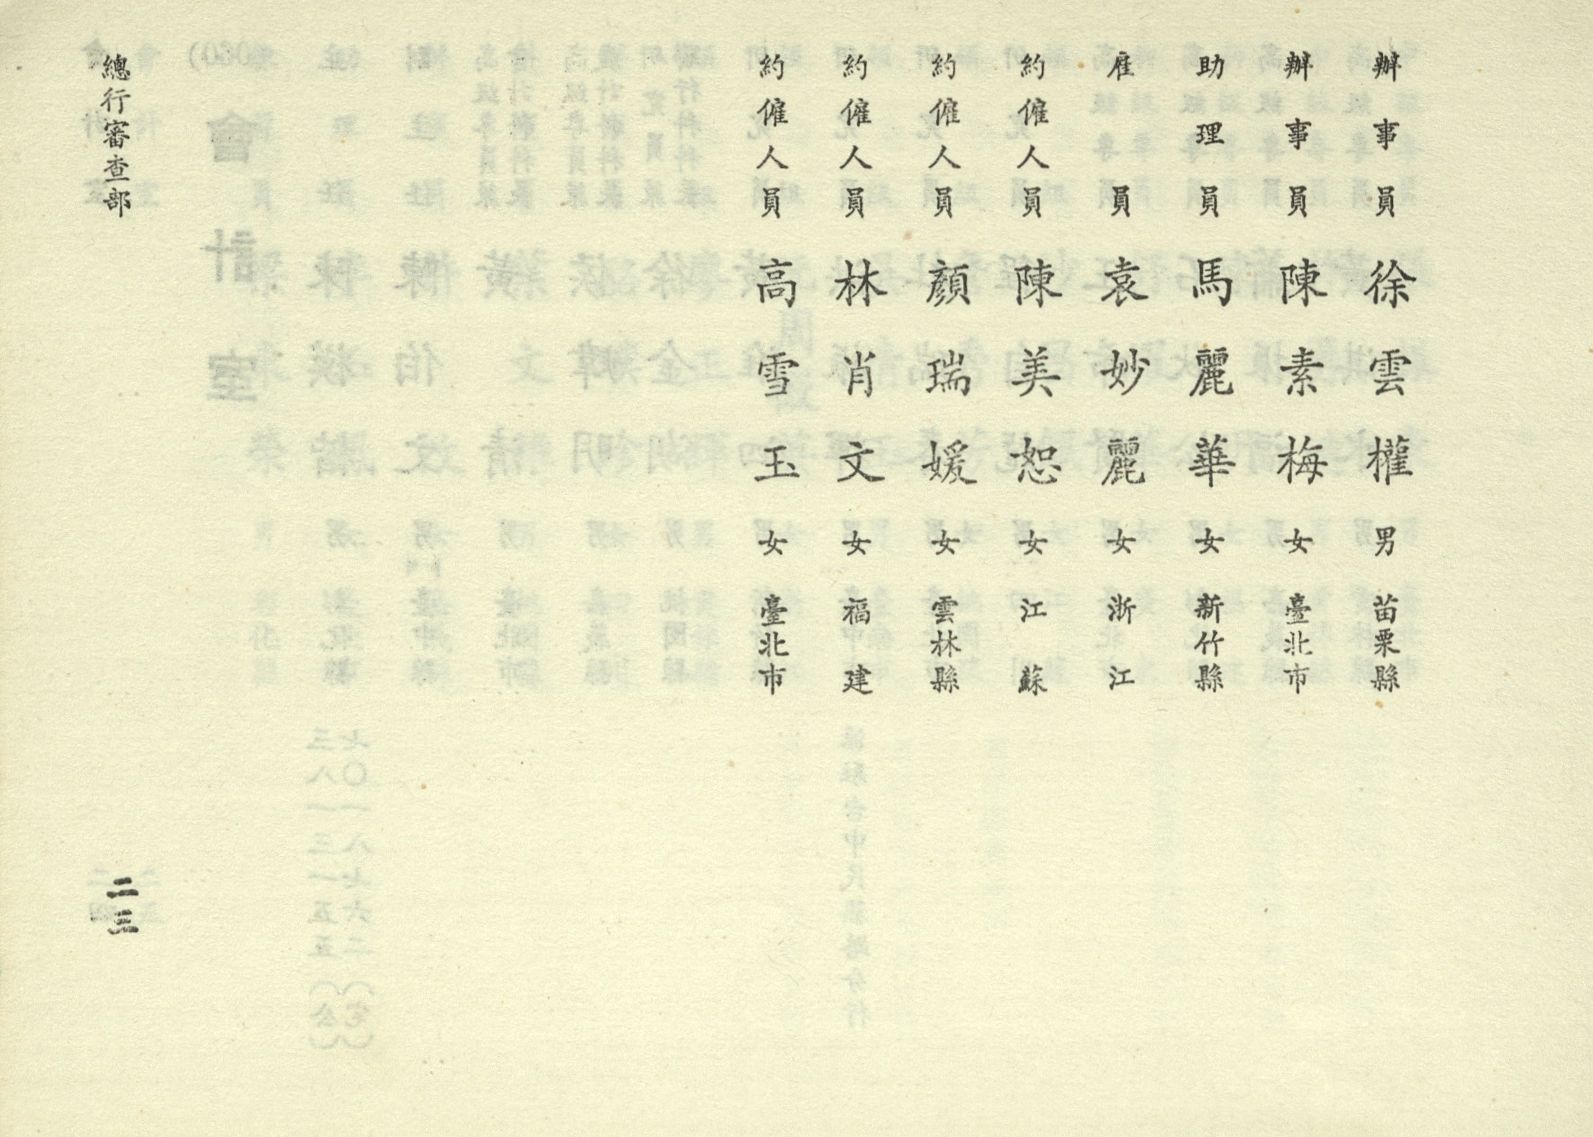 辦事員 徐雲權 男 苗栗縣
辦事員 陳素梅 女 臺北市
助理員 馬麗華 女 新竹縣
雇員 袁妙麗 女 浙江
約僱人員 陳美恕 女 江蘇
約僱人員 顏瑞媛 女 雲林縣
約僱人員 林肖文 女 福建
約僱人員 高雪玉 女 臺北市
總行審查部
二三